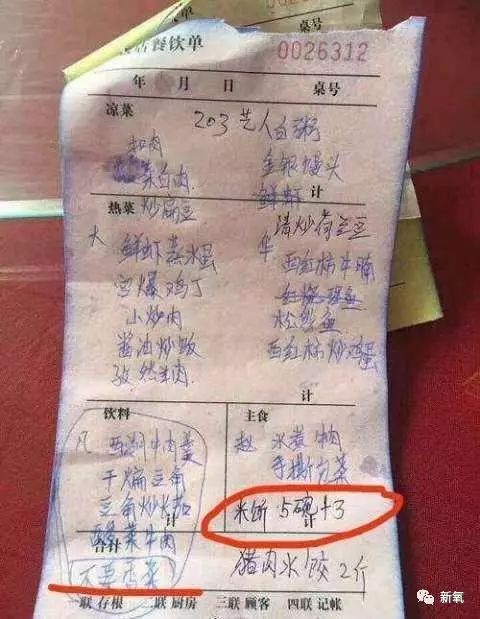 餐饮单
0026312
年 月 日 桌号
凉菜
203艺人白粥
扣肉
金银馒头
菜白肉
鲜虾
计
热菜
炒扁豆
清炒荷兰豆
大
鲜虾蒸水蛋
华
西红柿牛腩
宫爆鸡丁
小炒肉
松鼠鱼
酱油炒饭
西红柿炒鸡蛋
孜然羊肉
计
饮料
主食
凡
西湖牛肉羹
赵
水煮牛肉
干煸豆角
手撕包菜
豆角炒长茄
计
米饭 5碗+3
计
酸菜牛肉
合计
不要香菜
猪肉水饺2斤
一联 存根 二联 厨房 三联 顾客 四联 记帐
新氧